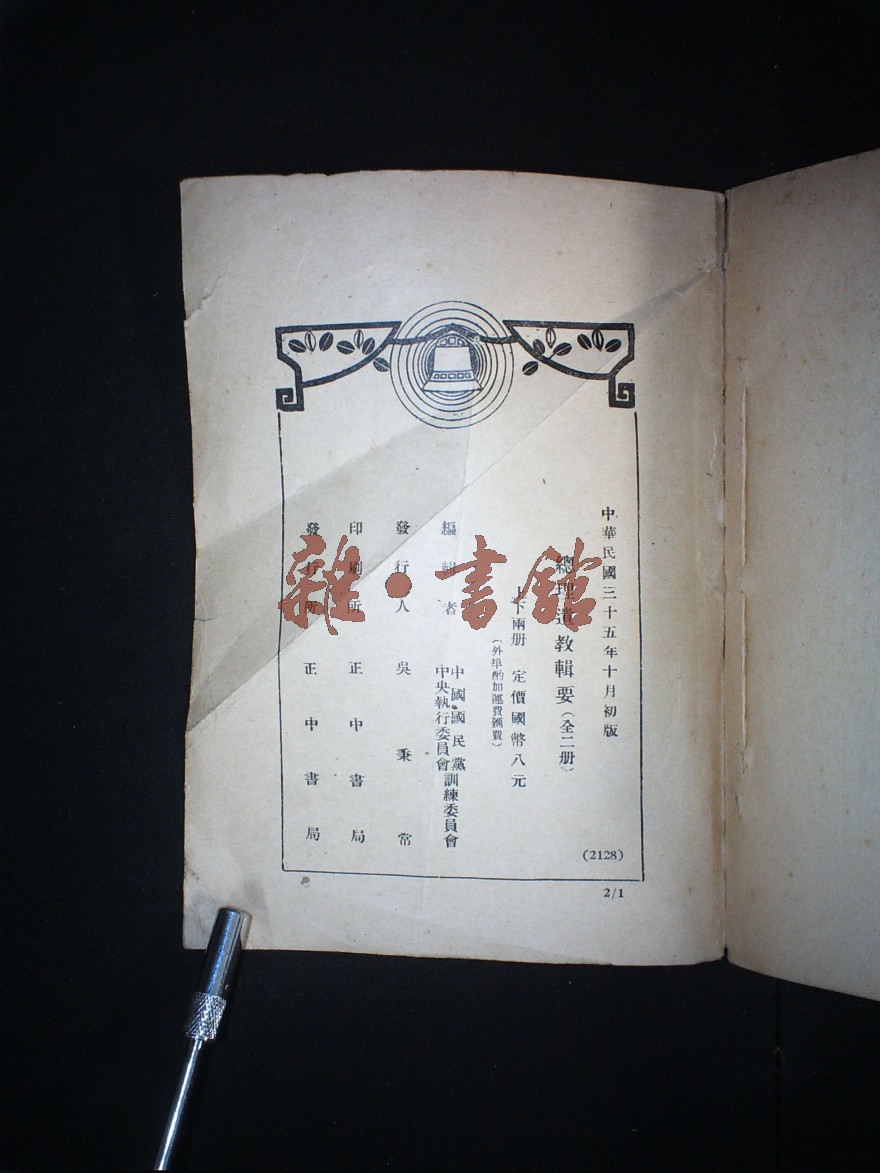 中華民國三十五年十月初版
總理遺教輯要(全二册)
下兩册 定價國幣八元
(外埠酌加運費匯費)
編輯者 中國國民黨中央執行委員會訓練委員會
發行人 吳秉常
印刷所 正中書局
發行所 正中書局
(2128)
2/1
雜·書館